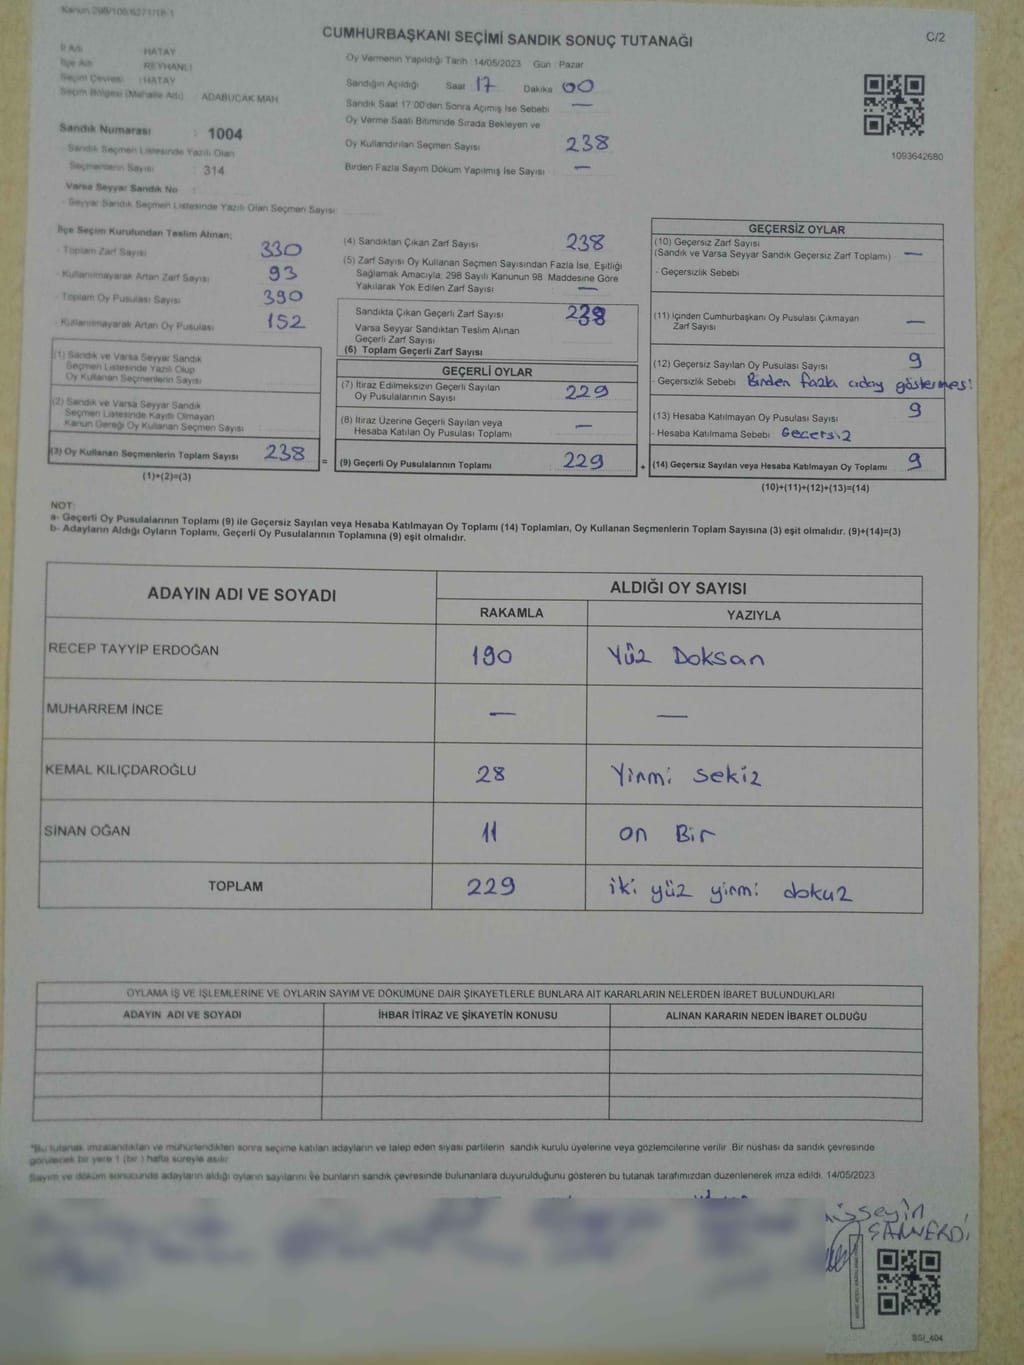 Kanun 298/109,6271/18-1
CUMHURBAŞKANI SEÇİMİ SANDIK SONUÇ TUTANAĞI
C/2
İl Adı : HATAY
İlçe Adı : REYHANLI
Seçim Çevresi : HATAY
Seçim Bölgesi (Mahalle Adı) : ADABUCAK MAH
Sandık Numarası : 1004
- Sandık Seçmen Listesinde Yazılı Olan
Seçmenlerin Sayısı : 314
Varsa Seyyar Sandık No :
- Seyyar Sandık Seçmen Listesinde Yazılı Olan Seçmen Sayısı:
Oy Vermenin Yapıldığı Tarih : 14/05/2023 Gün : Pazar
Sandığın Açıldığı Saat 17 Dakika 00
Sandık Saat 17:00'den Sonra Açımış İse Sebebi —
Oy Verme Saati Bitiminde Sırada Bekleyen ve
Oy Kullandırılan Seçmen Sayısı 238
Birden Fazla Sayım Döküm Yapılmış İse Sayısı —
1093642680
İlçe Seçim Kurulundan Teslim Alınan;
- Toplam Zarf Sayısı 330
- Kullanılmayarak Artan Zarf Sayısı 93
- Toplam Oy Pusulası Sayısı 390
- Kullanılmayarak Artan Oy Pusulası 152
(1) Sandık ve Varsa Seyyar Sandık
Seçmen Listesinde Yazılı Olup
Oy Kullanan Seçmenlerin Sayısı
(2) Sandık ve Varsa Seyyar Sandık
Seçmen Listesinde Kayıtlı Olmayan
Kanun Gereği Oy Kullanan Seçmen Sayısı
(3) Oy Kullanan Seçmenlerin Toplam Sayısı 238
(1)+(2)=(3)
=
(4) Sandıktan Çıkan Zarf Sayısı 238
(5) Zarf Sayısı Oy Kullanan Seçmen Sayısından Fazla İse, Eşitliği
Sağlamak Amacıyla, 298 Sayılı Kanunun 98. Maddesine Göre
Yakılarak Yok Edilen Zarf Sayısı —
Sandıkta Çıkan Geçerli Zarf Sayısı 238
Varsa Seyyar Sandıktan Teslim Alınan
Geçerli Zarf Sayısı
(6) Toplam Geçerli Zarf Sayısı
GEÇERLİ OYLAR
(7) İtiraz Edilmeksizin Geçerli Sayılan
Oy Pusulalarının Sayısı 229
(8) İtiraz Üzerine Geçerli Sayılan veya
Hesaba Katılan Oy Pusulası Toplamı —
(9) Geçerli Oy Pusulalarının Toplamı 229
+
GEÇERSİZ OYLAR
(10) Geçersiz Zarf Sayısı
(Sandık ve Varsa Seyyar Sandık Geçersiz Zarf Toplamı) —
- Geçersizlik Sebebi
(11) İçinden Cumhurbaşkanı Oy Pusulası Çıkmayan
Zarf Sayısı —
(12) Geçersiz Sayılan Oy Pusulası Sayısı 9
- Geçersizlik Sebebi Birden fazla aday göstermesi
(13) Hesaba Katılmayan Oy Pusulası Sayısı 9
- Hesaba Katılmama Sebebi Geçersiz
(14) Geçersiz Sayılan veya Hesaba Katılmayan Oy Toplamı 9
(10)+(11)+(12)+(13)=(14)
NOT:
a- Geçerli Oy Pusulalarının Toplamı (9) ile Geçersiz Sayılan veya Hesaba Katılmayan Oy Toplamı (14) Toplamları, Oy Kullanan Seçmenlerin Toplam Sayısına (3) eşit olmalıdır. (9)+(14)=(3)
b- Adayların Aldığı Oyların Toplamı, Geçerli Oy Pusulalarının Toplamına (9) eşit olmalıdır.
ADAYIN ADI VE SOYADI
ALDIĞI OY SAYISI
RAKAMLA YAZIYLA
RECEP TAYYİP ERDOĞAN 190 Yüz Doksan
MUHARREM İNCE — —
KEMAL KILIÇDAROĞLU 28 Yirmi Sekiz
SİNAN OĞAN 11 on Bir
TOPLAM 229 iki yüz yirmi dokuz
OYLAMA İŞ VE İŞLEMLERİNE VE OYLARIN SAYIM VE DÖKÜMÜNE DAİR ŞİKAYETLERLE BUNLARA AİT KARARLARIN NELERDEN İBARET BULUNDUKLARI
ADAYIN ADI VE SOYADI İHBAR İTİRAZ VE ŞİKAYETİN KONUSU ALINAN KARARIN NEDEN İBARET OLDUĞU
*Bu tutanak imzalandıktan ve mühürlendikten sonra seçime katılan adayların ve talep eden siyasi partilerin sandık kurulu üyelerine veya gözlemcilerine verilir. Bir nüshası da sandık çevresinde
görülecek bir yere 1 (bir ) hafta süreyle asılır.
Sayım ve döküm sonucunda adayların aldığı oyların sayılarını ve bunların sandık çevresinde bulunanlara duyurulduğunu gösteren bu tutanak tarafımızdan düzenlenerek imza edildi. 14/05/2023
SGI_404